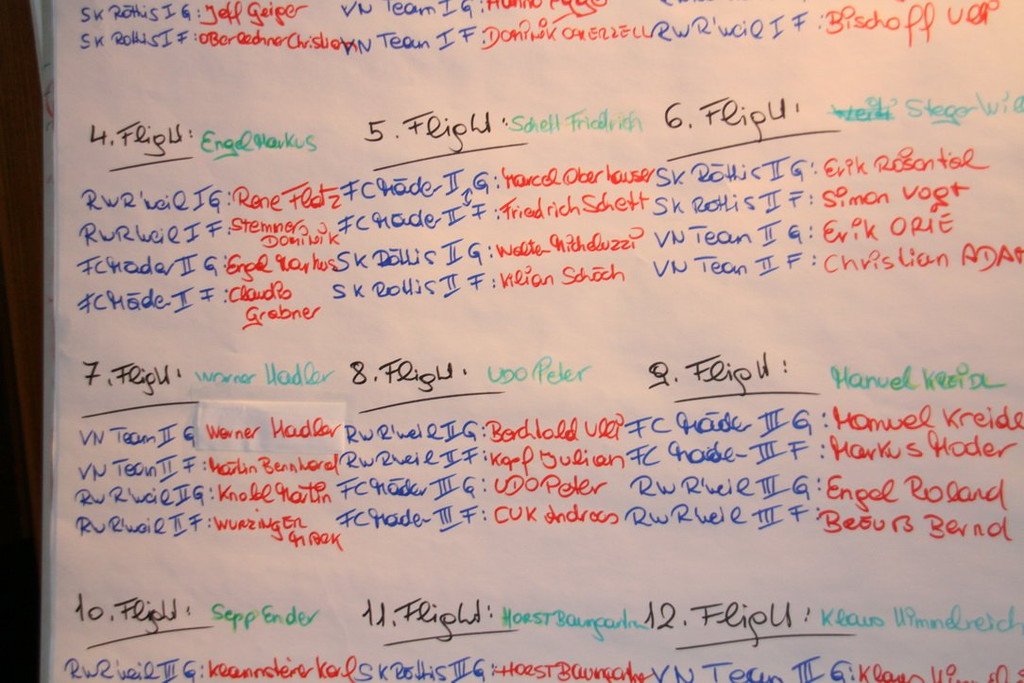 SK Röthis I G: Jeff Geiger
VN Team I G:
SK Röthis I F:
VN Team I F: DOMINIK
RW R'weil I F: Bischoff Uli
4. Flight: Engel Markus
RW R'weil I G: Rene Flatz
RW R'weil I F: Stemmer DOMINIK
FC Mäder II G: Engel Markus
FC Mäder II F: Claudio Grabner
5. Flight: Schett Friedrich
FC Mäder II G: Marcel Oberhauser
FC Mäder II F: Friedrich Schett
SK Röthis II G: Walter Micheluzzi
SK Röthis II F: Kilian Schöch
6. Flight: Steger
SK Röthis II G: Erik Rosentiel
SK Röthis II F: Simon Vogt
VN Team II G: Erik ORIE
VN Team II F: Christian ADAM
7. Flight: Werner Hadler
VN Team II G Werner Hadler
VN Team II F: Martin Bernhard
RW R'weil II G: Knobl Martin
RW R'weil II F: WURZINGER
8. Flight: UDO Peter
RW R'weil II G: Berchtold Uli
RW R'weil II F: Kopf Julian
FC Mäder III G: UDO Peter
FC Mäder III F: CUK Andreas
9. Flight: Manuel KREIDL
FC Mäder III G: Manuel Kreidl
FC Mäder III F: Markus Mader
RW R'weil III G: Engel Roland
RW R'weil III F: Beeuß Bernd
10. Flight: Sepp Ender
RW R'weil III G:
11. Flight: HORST Baumgartner
SK Röthis III G: HORST Baumgartner
12. Flight: Klaus Himmelreich
VN Team III G: Klaus